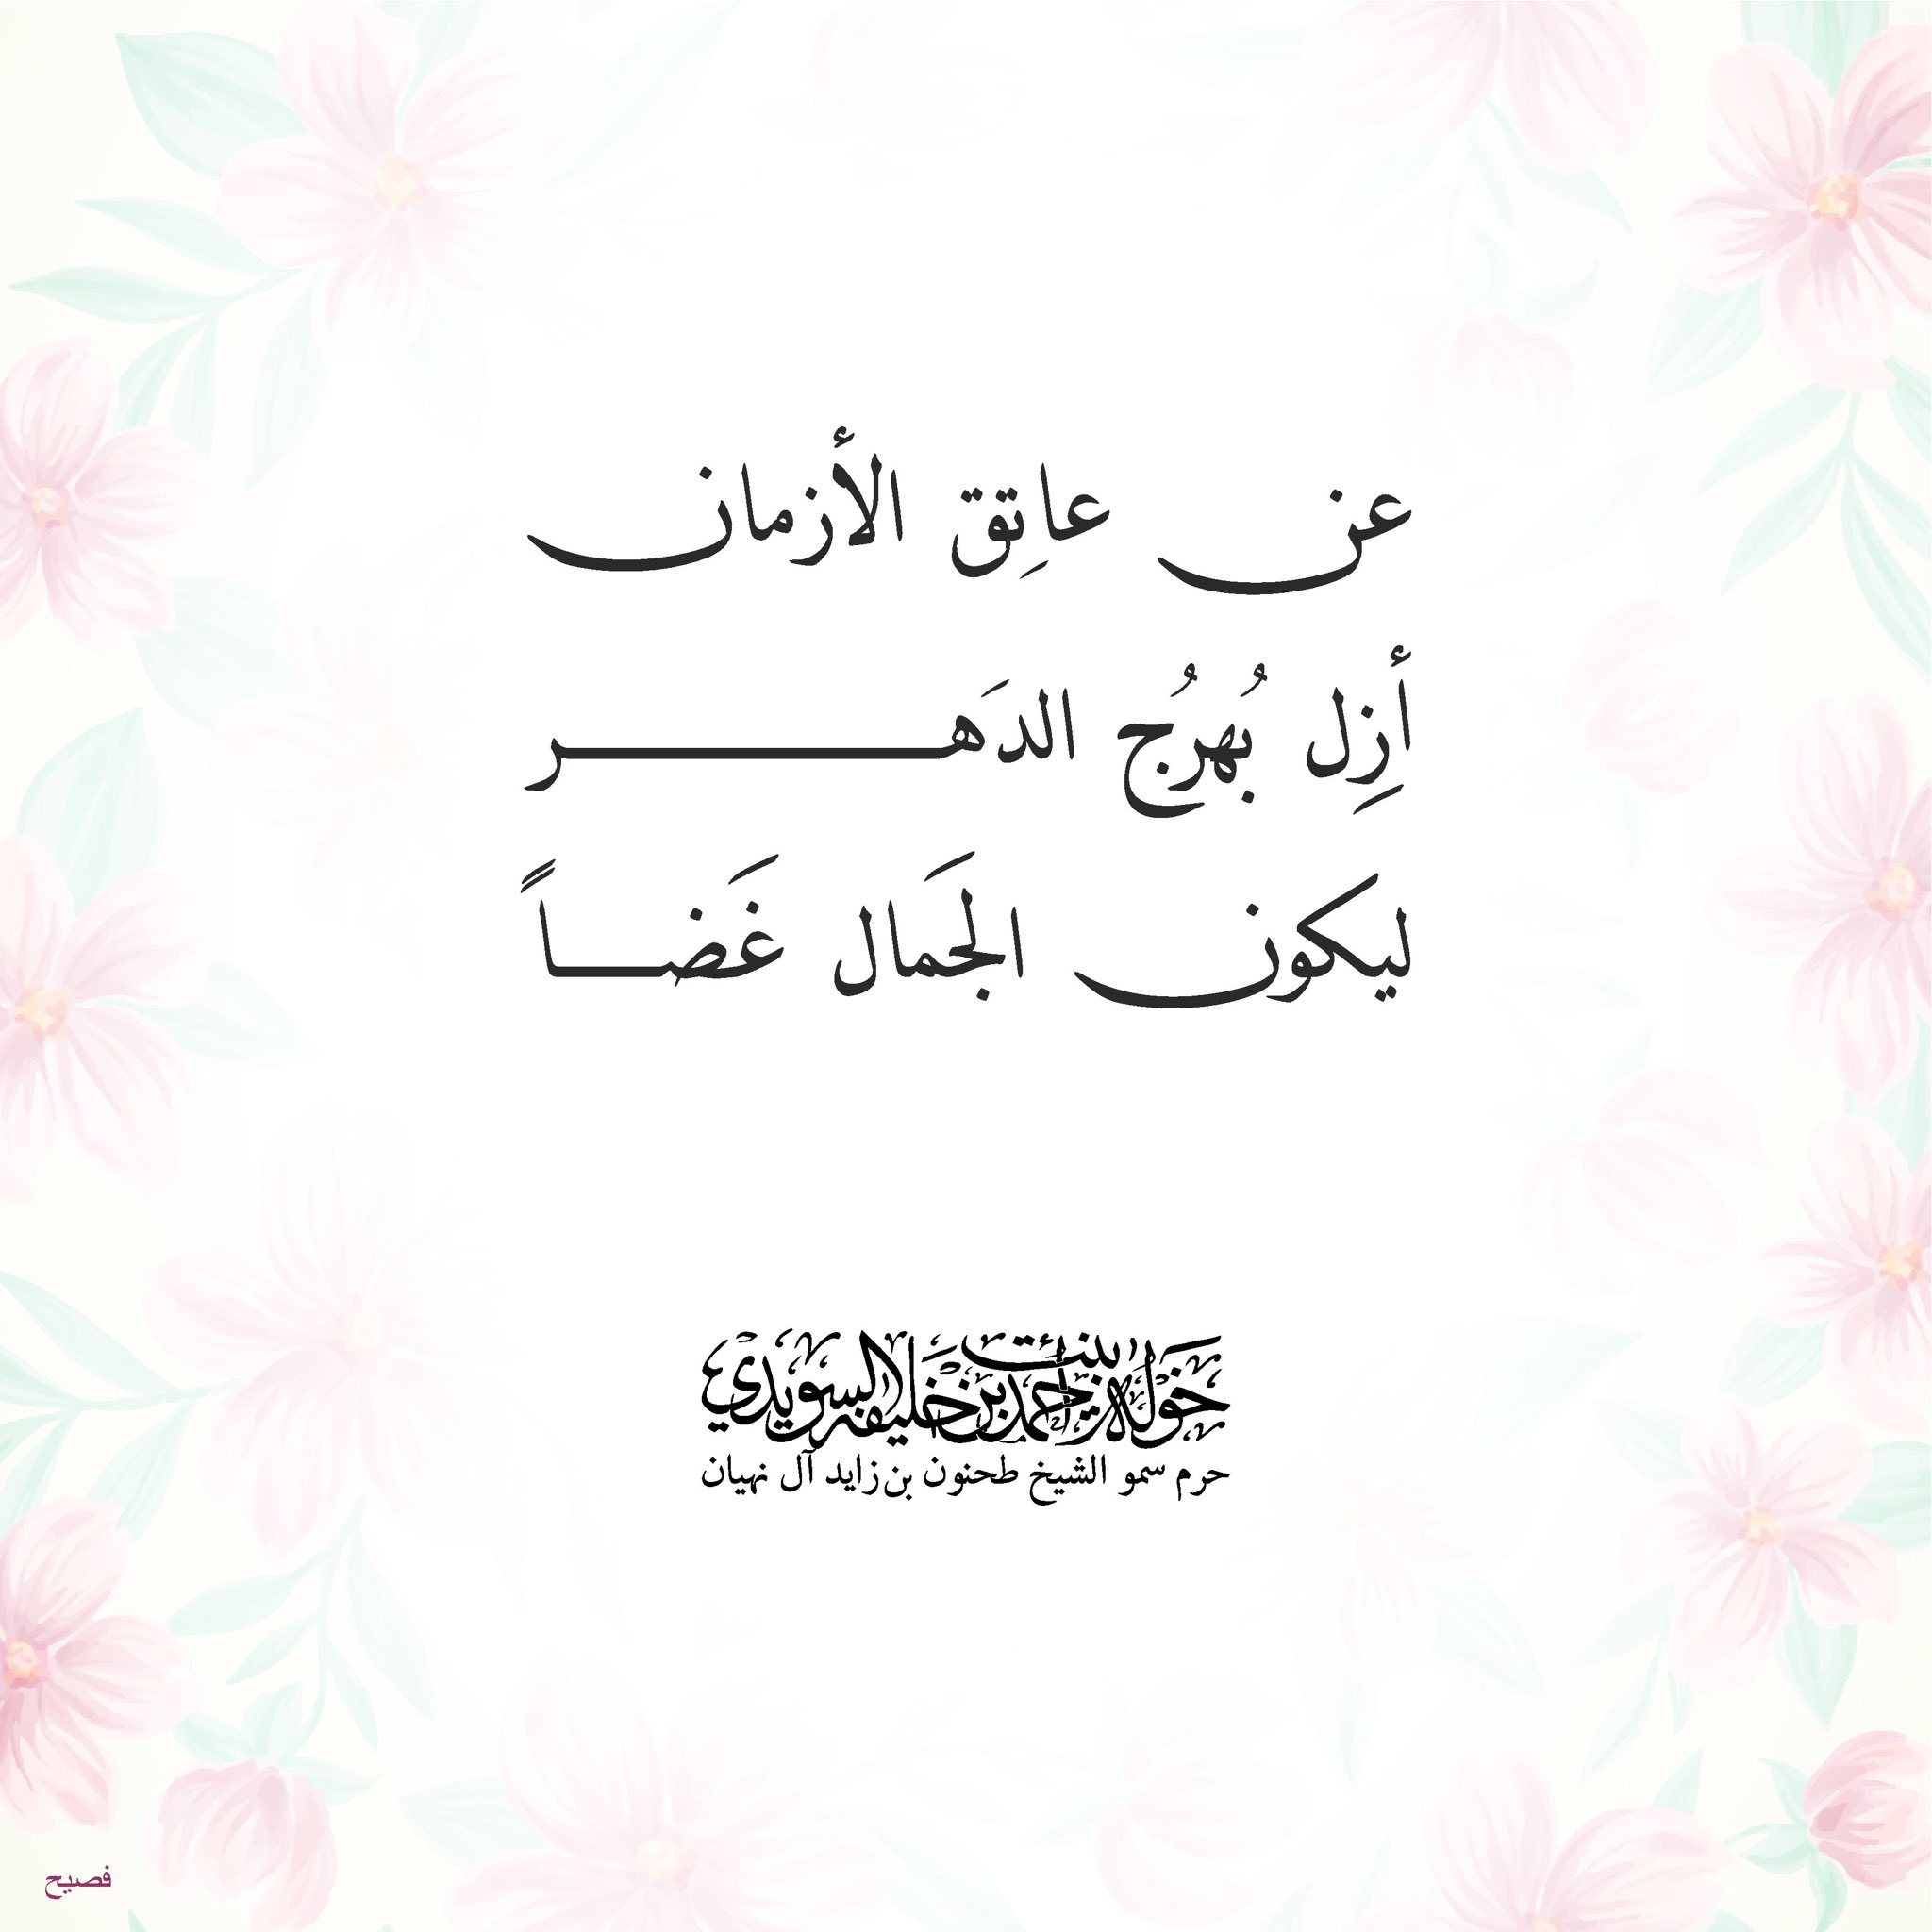 عن عاتِق الأزمان
أزِل بُهرُج الدَهر
ليكون الجَمال غَضاً
خوله بنت أحمد بن خليفه السويدي
حرم سمو الشيخ طحنون بن زايد آل نهيان
فصيح